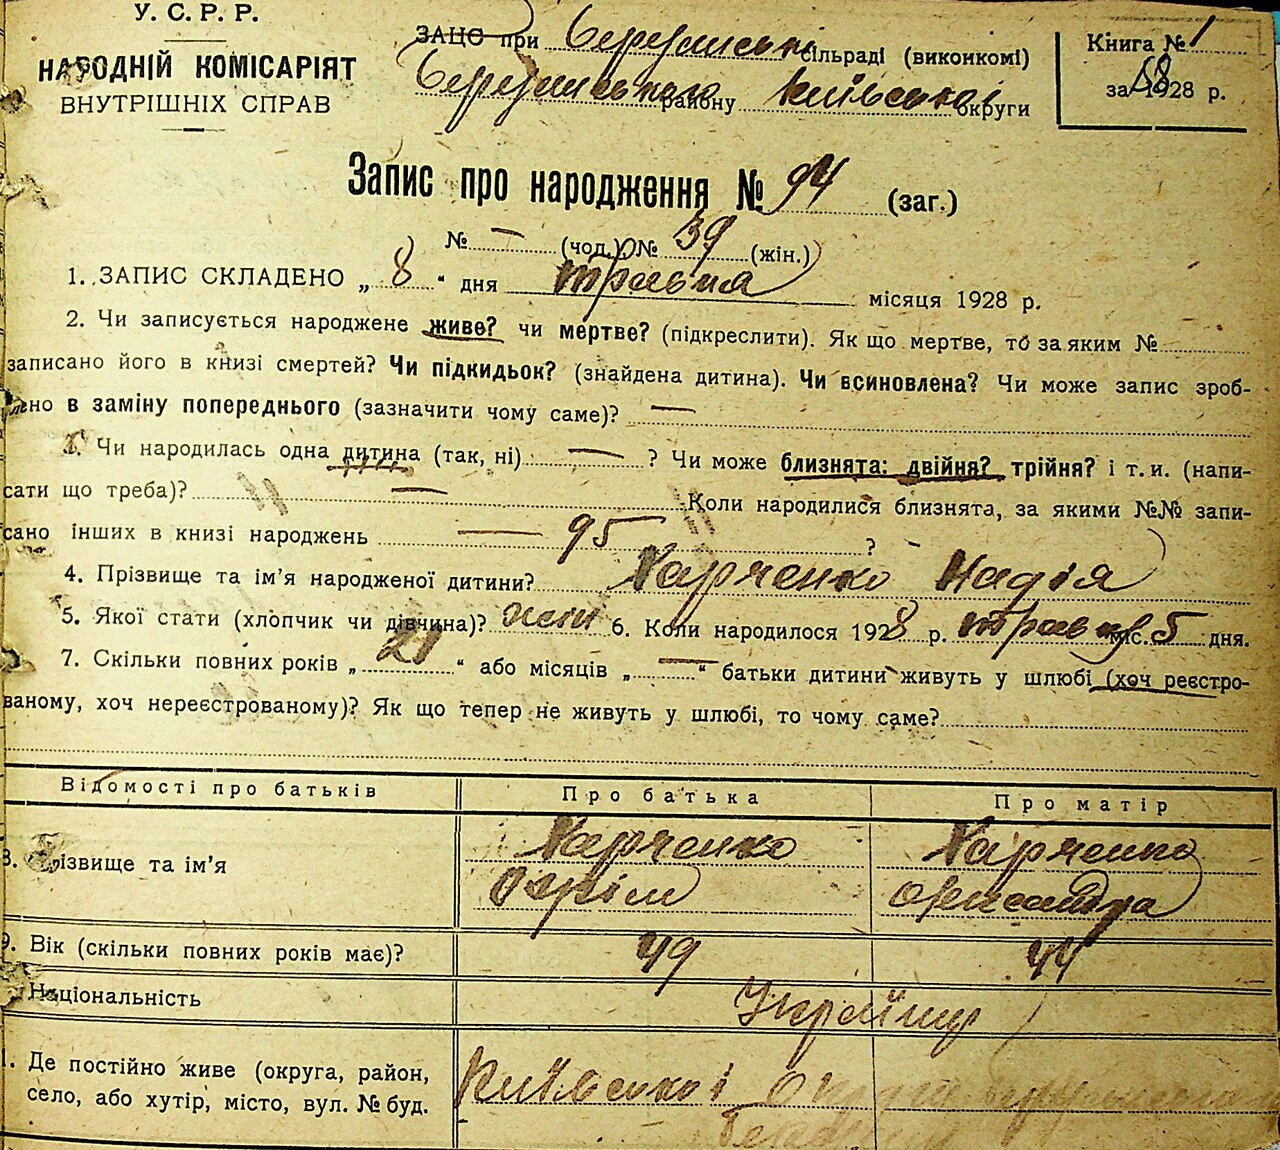 У. С. Р. Р.
НАРОДНІЙ КОМІСАРІЯТ
ВНУТРІШНІХ СПРАВ
ЗАЦС при сільраді (виконкомі)
району Київської округи
Книга № 1
за 1928 р.
Запис про народження № 94 (заг.)
№ — (чол.) № 39 (жін.)
1. ЗАПИС СКЛАДЕНО „ 8 “ дня травня місяця 1928 р.
2. Чи записується народжене живе? чи мертве? (підкреслити). Як що мертве, то за яким №
записано його в книзі смертей? Чи підкидьок? (знайдена дитина). Чи всиновлена? Чи може запис зроб-
лено в заміну попереднього (зазначити чому саме)? —
3. Чи народилась одна дитина (так, ні) — ? Чи може близнята: двійня? трійня? і т. и. (напи-
сати що треба)? — Коли народилися близнята, за якими №№ запи-
сано інших в книзі народжень — 95 ?
4. Прізвище та ім’я народженої дитини? Харченко Надія
5. Якої стати (хлопчик чи дівчина)? жін 6. Коли народилося 1928 р. травня міс. 5 дня.
7. Скільки повних років „ “ або місяців „ — “ батьки дитини живуть у шлюбі (хоч реєстро-
ваному, хоч нереєстрованому)? Як що тепер не живуть у шлюбі, то чому саме?
Відомості про батьків Про батька Про матір
8. Прізвище та ім’я Харченко Харченко
Юхрім Олександра
9. Вік (скільки повних років має)? 49 44
Національність Українці
Де постійно живе (округа, район, Київської округи
село, або хутір, місто, вул. № буд.